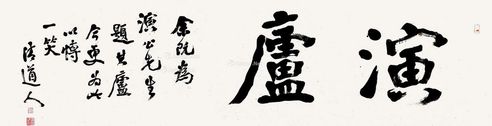 演廬
余既為
演公先生
題其廬
今更為此
以博
一笑
清道人